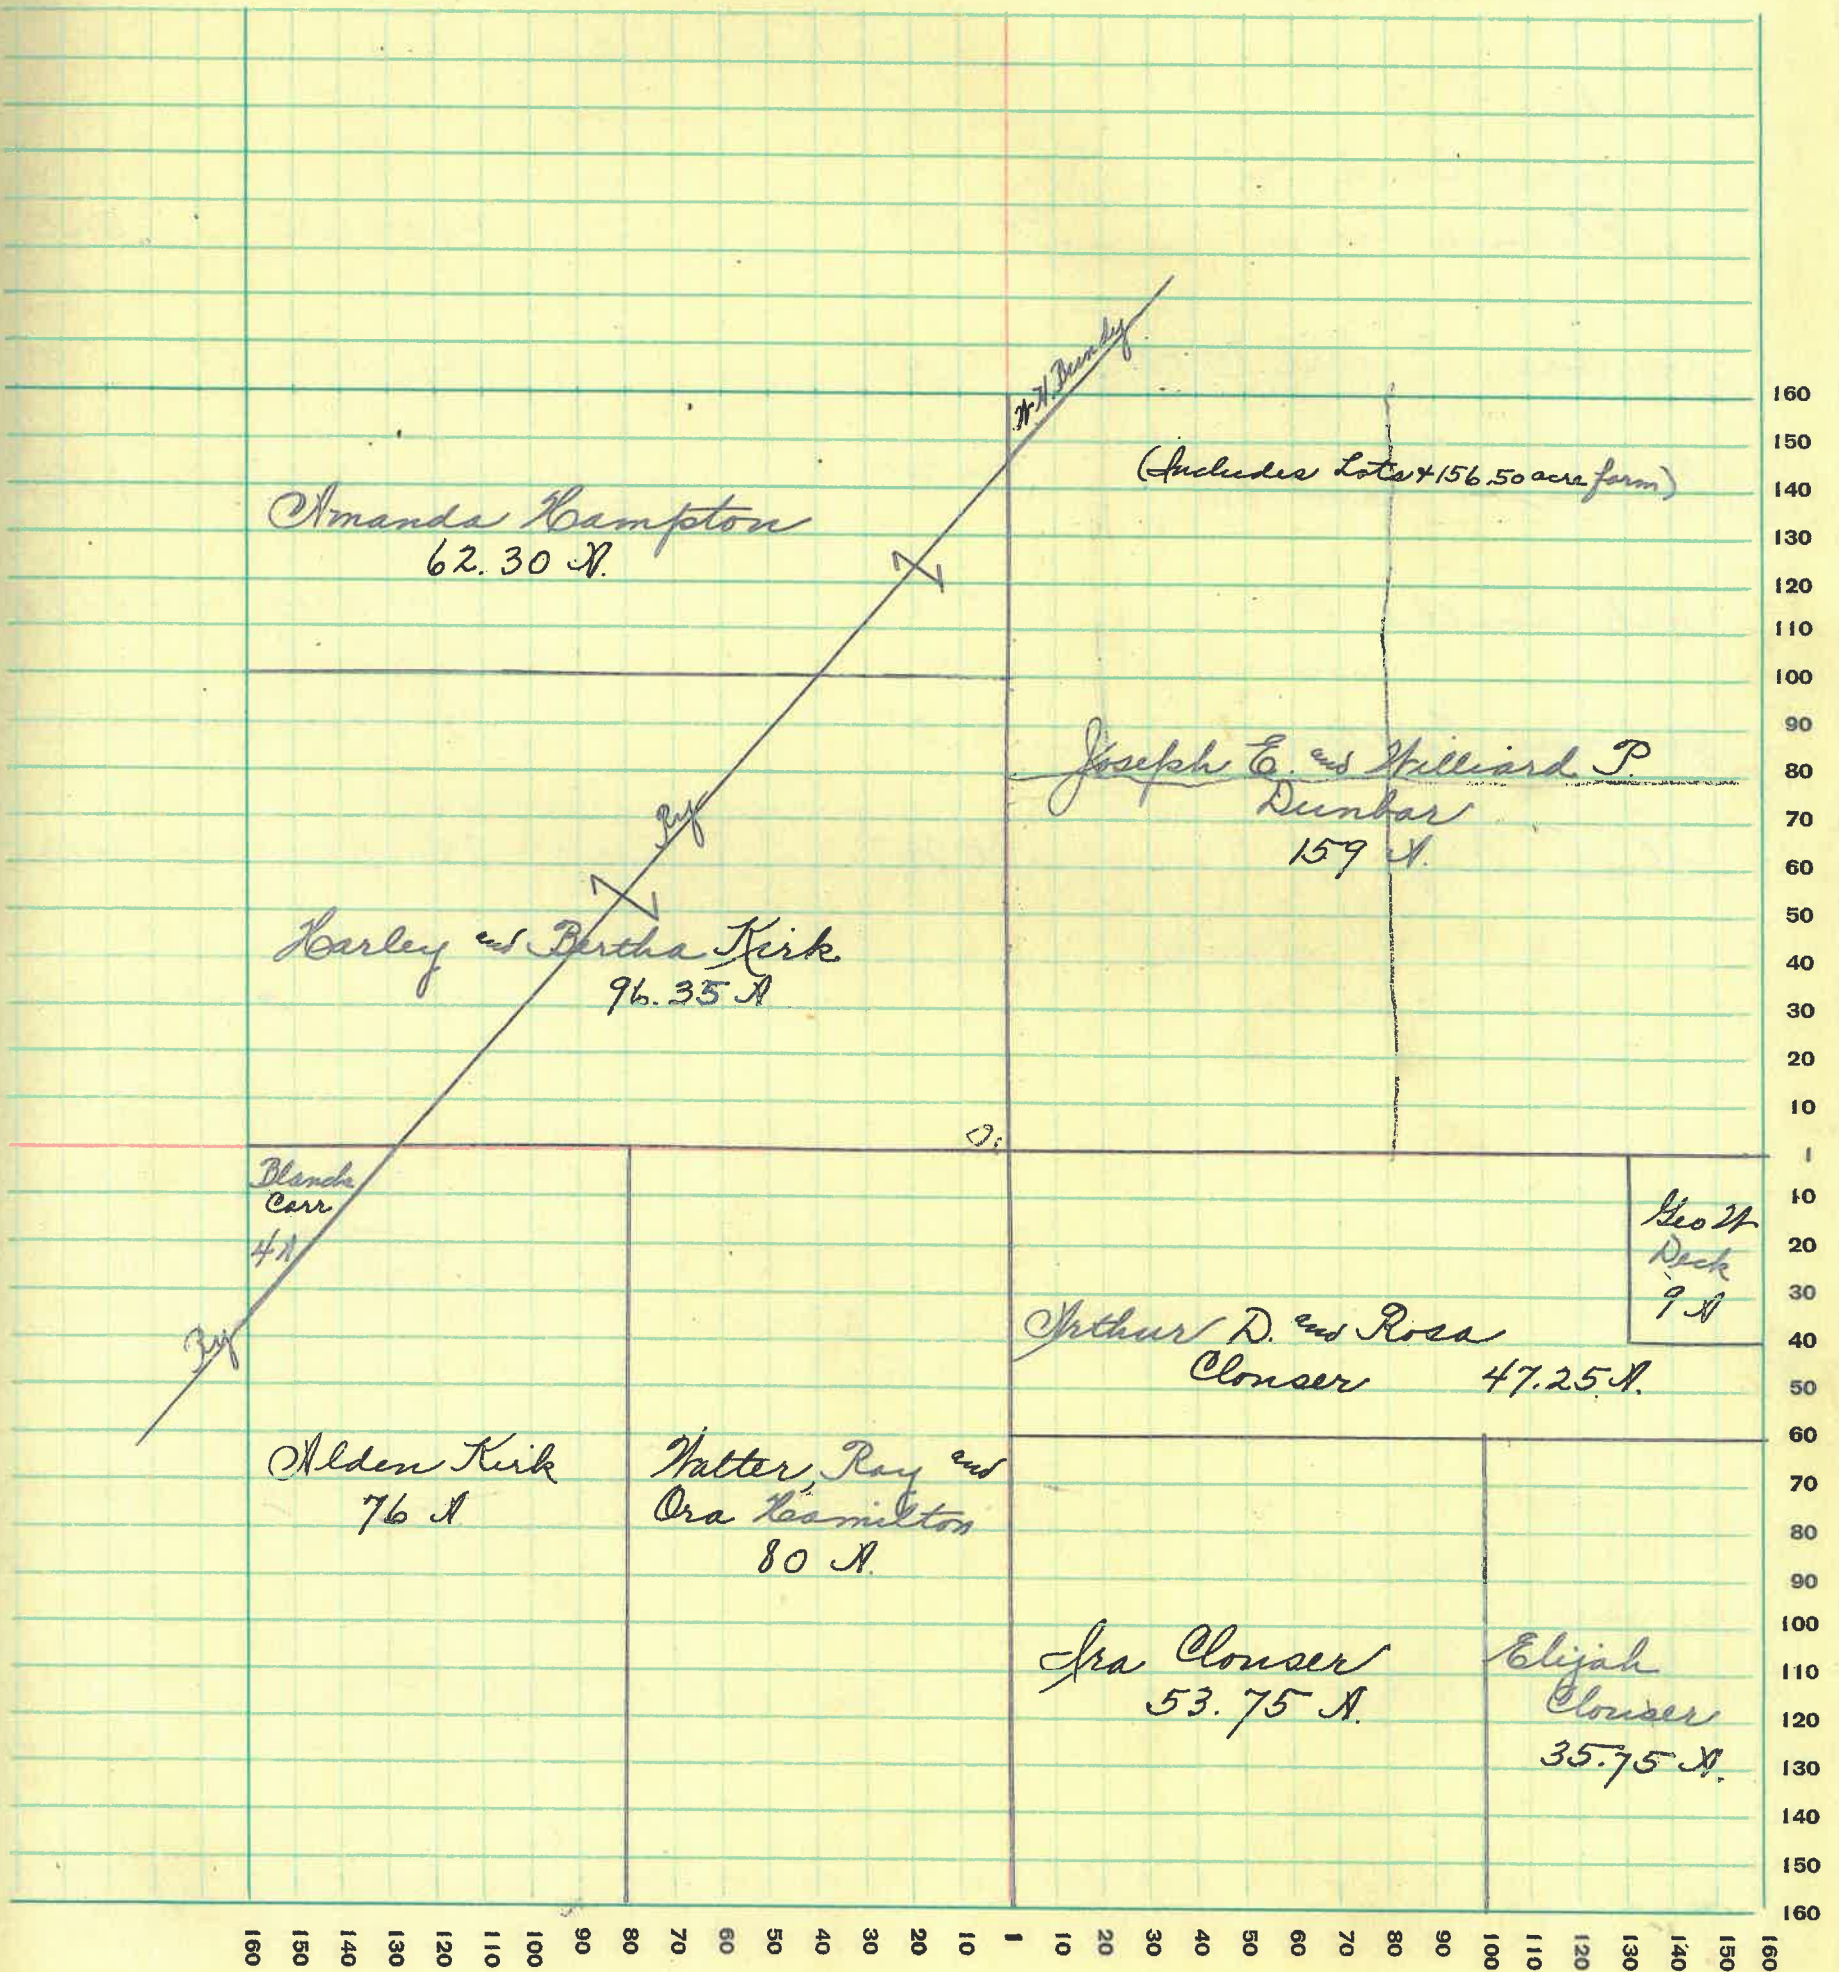 W. H. Bundy
(Includes Lots + 156.50 acre farm)
Amanda Hampton
62.30 A.
Joseph E. and Williard P.
Dunbar
159 A.
Ry
Harley and Bertha Kirk
96.35 A
Blanche
Carr
4 A
Ry
Geo W
Deck
9 A
Arthur D. and Rosa
Clouser 47.25 A.
Alden Kirk
76 A
Walter, Ray and
Ora Hamilton
80 A.
Ira Clouser
53.75 A.
Elijah
Clouser
35.75 A.
160
150
140
130
120
110
100
90
80
70
60
50
40
30
20
10
1
10
20
30
40
50
60
70
80
90
100
110
120
130
140
150
160
160 150 140 130 120 110 100 90 80 70 60 50 40 30 20 10 1 10 20 30 40 50 60 70 80 90 100 110 120 130 140 150 160